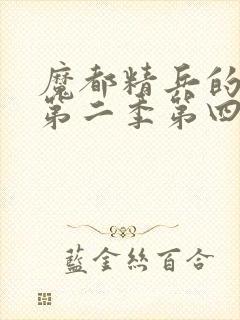 魔都精兵的
第二季第四
藍金絲百合